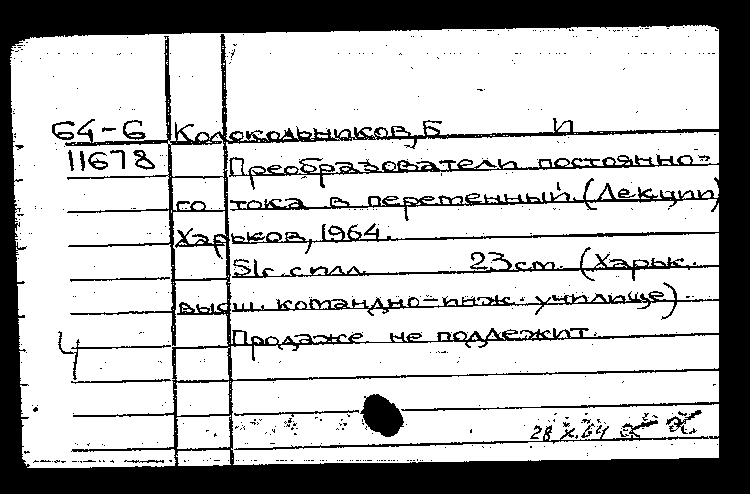 64-6 Колокольников, Б И
11678 Преобразователи постоянно-
го тока в переменный. (Лекции)
Харьков, 1964.
51с. с илл. 23 см. (Харьк.
высш. командно-инж. училище)
Продаже не подлежит.
28 X.64